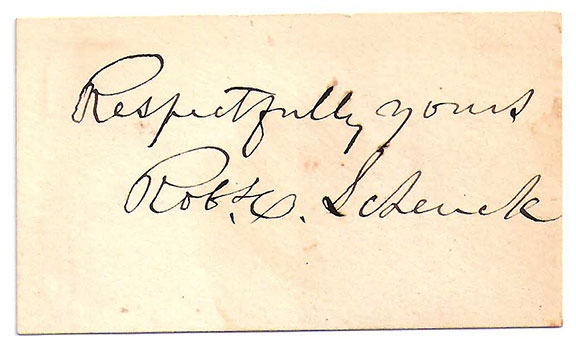 Respectfully yours
Robt. C. Schenck